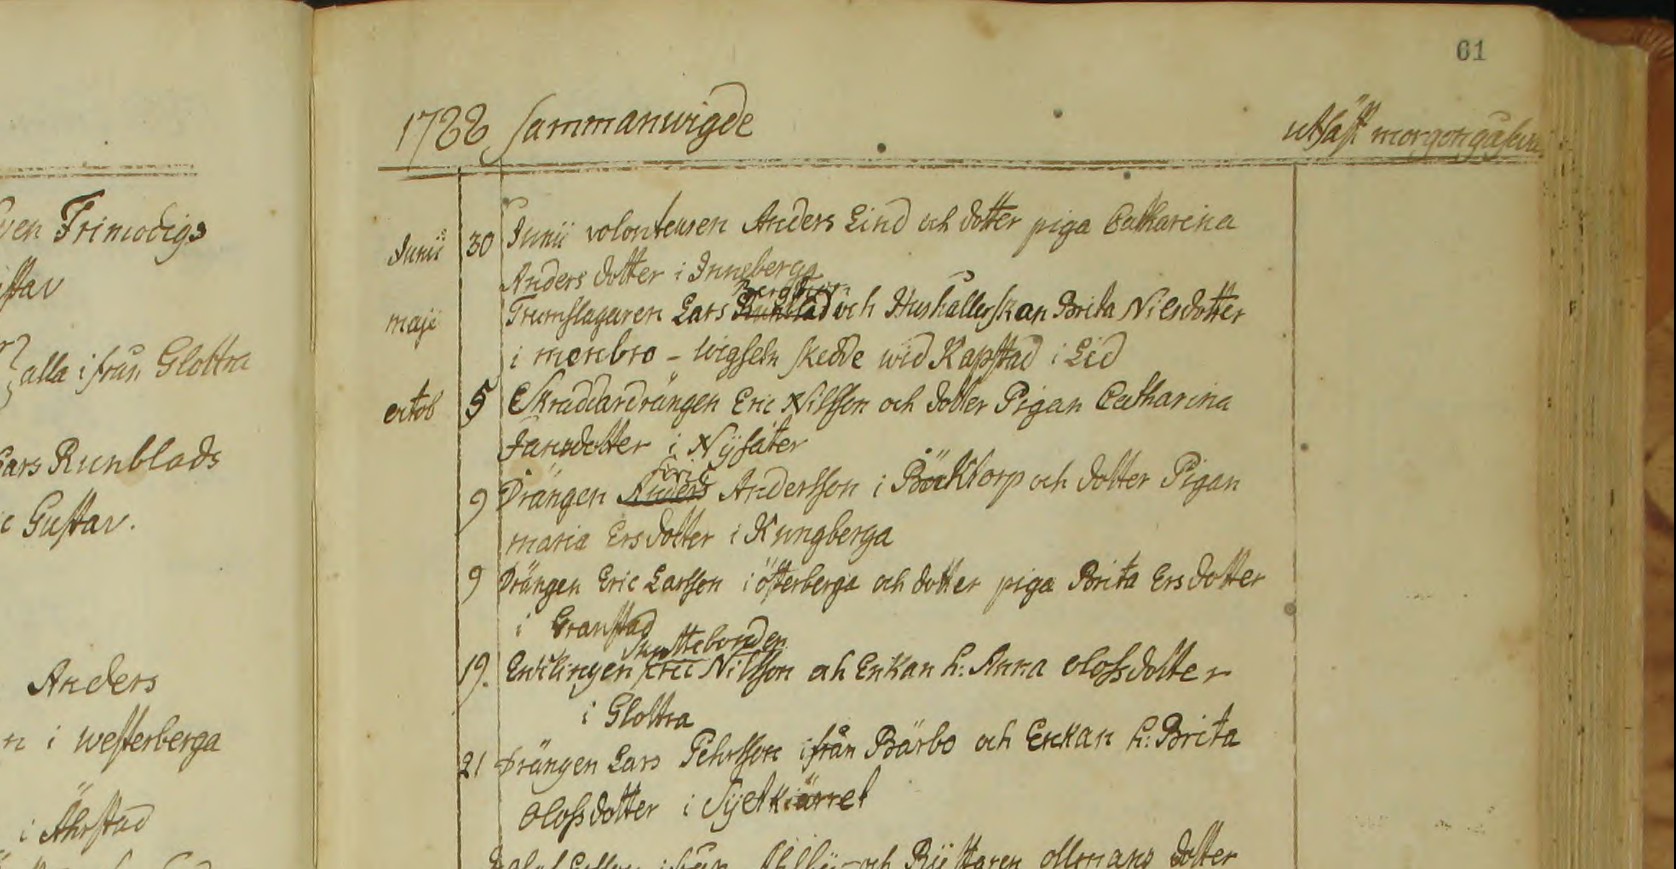 61
1788 Sammanwigde
utfäst morgongåfwa
ven Frimodigs
stav
alla ifrån Glottra
Lars Runblads
c Gustav.
Anders
n i westerberga
i Åhrstad
Junii 30 Junii volonteuren Anders Lind och dotter piga Catharina
Anders dotter i Inneberga
Bergstur
maji Trumslagaren Lars Runblad och Hushållerskan Brita Nilsdotter
i menbro - wigseln skedde wid Kapstad i Lid
octob 5 Skräddardrängen Eric Nilsson och dotter Pigan Catharina
Jansdotter i Nÿsäter
Eric
9 Drängen Anders Andersson i Böcktorp och dotter Pigan
maria Ersdotter i Kungberga
9 Drängen Eric Larsson i österberga och dotter piga Brita Ersdotter
i Granstad
Skuttebonden
19. Encklingen Eric Nilsson och Enkan h: Anna Olofsdotter
i Glottra
21 Drängen Lars Pehrsson ifrån Bärbo och Enkan h: Brita
Olofsdotter i Syltkiärret
och Rÿttaren ollmans dotter